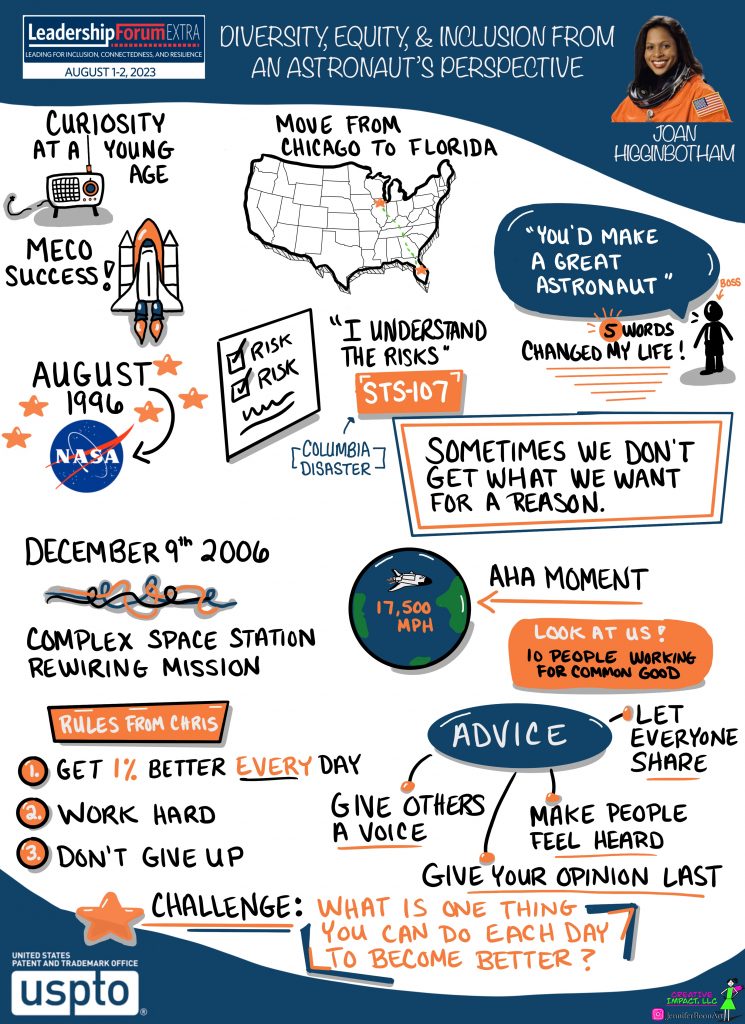 LeadershipForumEXTRA
LEADING FOR INCLUSION, CONNECTEDNESS, AND RESILIENCE
AUGUST 1-2, 2023
DIVERSITY, EQUITY, & INCLUSION FROM
AN ASTRONAUT'S PERSPECTIVE
JOAN
HIGGINBOTHAM
CURIOSITY
AT A YOUNG
AGE
MOVE FROM
CHICAGO TO FLORIDA
MECO
SUCCESS!
"YOU'D MAKE
A GREAT
ASTRONAUT"
BOSS
5 WORDS
CHANGED MY LIFE!
RISK
RISK
"I UNDERSTAND
THE RISKS"
STS-107
COLUMBIA
DISASTER
AUGUST
1996
NASA
SOMETIMES WE DON'T
GET WHAT WE WANT
FOR A REASON.
DECEMBER 9th 2006
COMPLEX SPACE STATION
REWIRING MISSION
17,500
MPH
AHA MOMENT
LOOK AT US!
10 PEOPLE WORKING
FOR COMMON GOOD
RULES FROM CHRIS
1. GET 1% BETTER EVERY DAY
2. WORK HARD
3. DON'T GIVE UP
ADVICE
LET
EVERYONE
SHARE
GIVE OTHERS
A VOICE
MAKE PEOPLE
FEEL HEARD
GIVE YOUR OPINION LAST
CHALLENGE: WHAT IS ONE THING
YOU CAN DO EACH DAY
TO BECOME BETTER?
UNITED STATES
PATENT AND TRADEMARK OFFICE
uspto®
CREATIVE
IMPACT, LLC